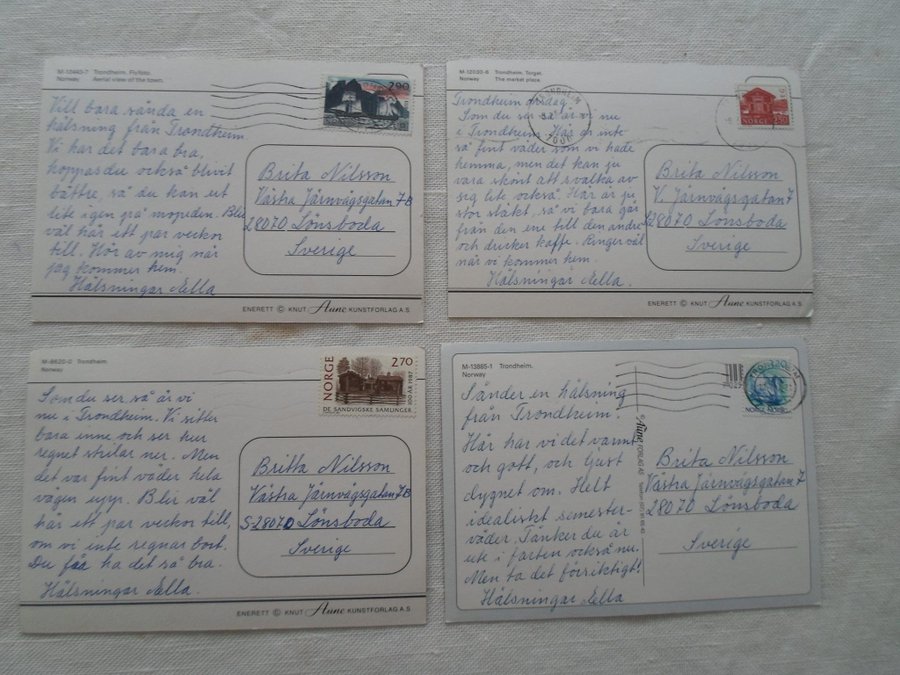 M-12443-7 Trondheim. Flyfoto.
Norway Aerial view of the town.
2.90
Vill bara sända en
hälsning från Trondheim
Vi har det bara bra,
hoppas du också blivit
bättre, så du kan ut
lite igen på mopeden. Blir
väl här ett par veckor
till. Hör av mig när
jag kommer hem.
Hälsningar Ella
Brita Nilsson
Västra Järnvägsgatan 7B
28070 Lönsboda
Sverige
ENERETT © KNUT Aune KUNSTFORLAG A.S
M-12030-6 Trondheim. Torget.
Norway The market place.
TRONDHEIM
NORGE
Trondheim onsdag
Som du ser så är vi nu
i Trondheim. Här är inte
så fint väder som vi hade
hemma, men det kan ju
vara skönt att svalka av
sig lite också. Här är ju
stor släkt, så vi bara går
från den ene till den andre
och dricker kaffe. Ringer väl
när vi kommer hem.
Hälsningar Ella.
Brita Nilsson
V. Järnvägsgatan 7
28070 Lönsboda
Sverige
ENERETT © KNUT Aune KUNSTFORLAG A.S
M-8620-0 Trondheim.
Norway
NORGE
2.70
100 ÅR 1987
DE SANDVIGSKE SAMLINGER
Som du ser så är vi
nu i Trondheim. Vi sitter
bara inne och ser hur
regnet strilar ner. Men
det var fint väder hela
vägen upp. Blir väl
här ett par veckor till,
om vi inte regnar bort.
Du får ha det så bra.
Hälsningar Ella.
Britta Nilsson
Västra Järnvägsgatan 7B
S-28070 Lönsboda
Sverige
ENERETT © KNUT Aune KUNSTFORLAG A.S
M-13885-1 Trondheim.
Norway
NORGE
Sänder en hälsning
från Trondheim.
Här har vi det varmt
och gott, och ljust
dygnet om. Helt
idealiskt semester-
väder. Tänker du är
ute i farten också nu.
Men ta det försiktigt!
Hälsningar Ella
© Aune FORLAG AS
Brita Nilsson
Västra Järnvägsgatan 7
28070 Lönsboda
Sverige